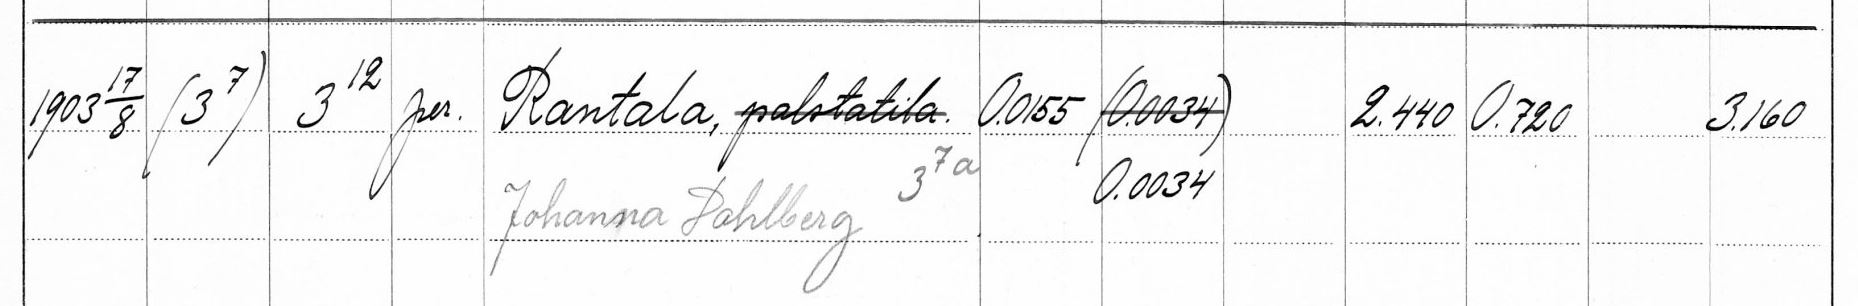 1903 17/8 (3^7) 3^12 per. Rantala, palstatila. 0.0155 (0.0034) 2.440 0.720 3.160
3^7a 0.0034
Johanna Dahlberg